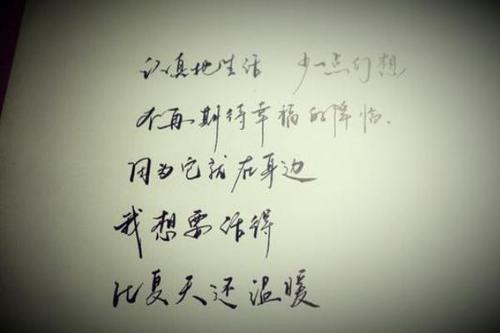 认真地生活 少一点幻想
不再期待幸福的降临.
因为它就在身边
我想要活得
比夏天还温暖